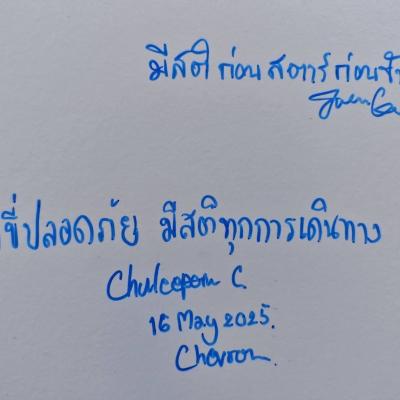 มีสติ ก่อนสตาร์ทก่อนขั
ขี่ปลอดภัย มีสติทุกการเดินทาง
Chuleeporn C.
16 May 2025.
Chevron.